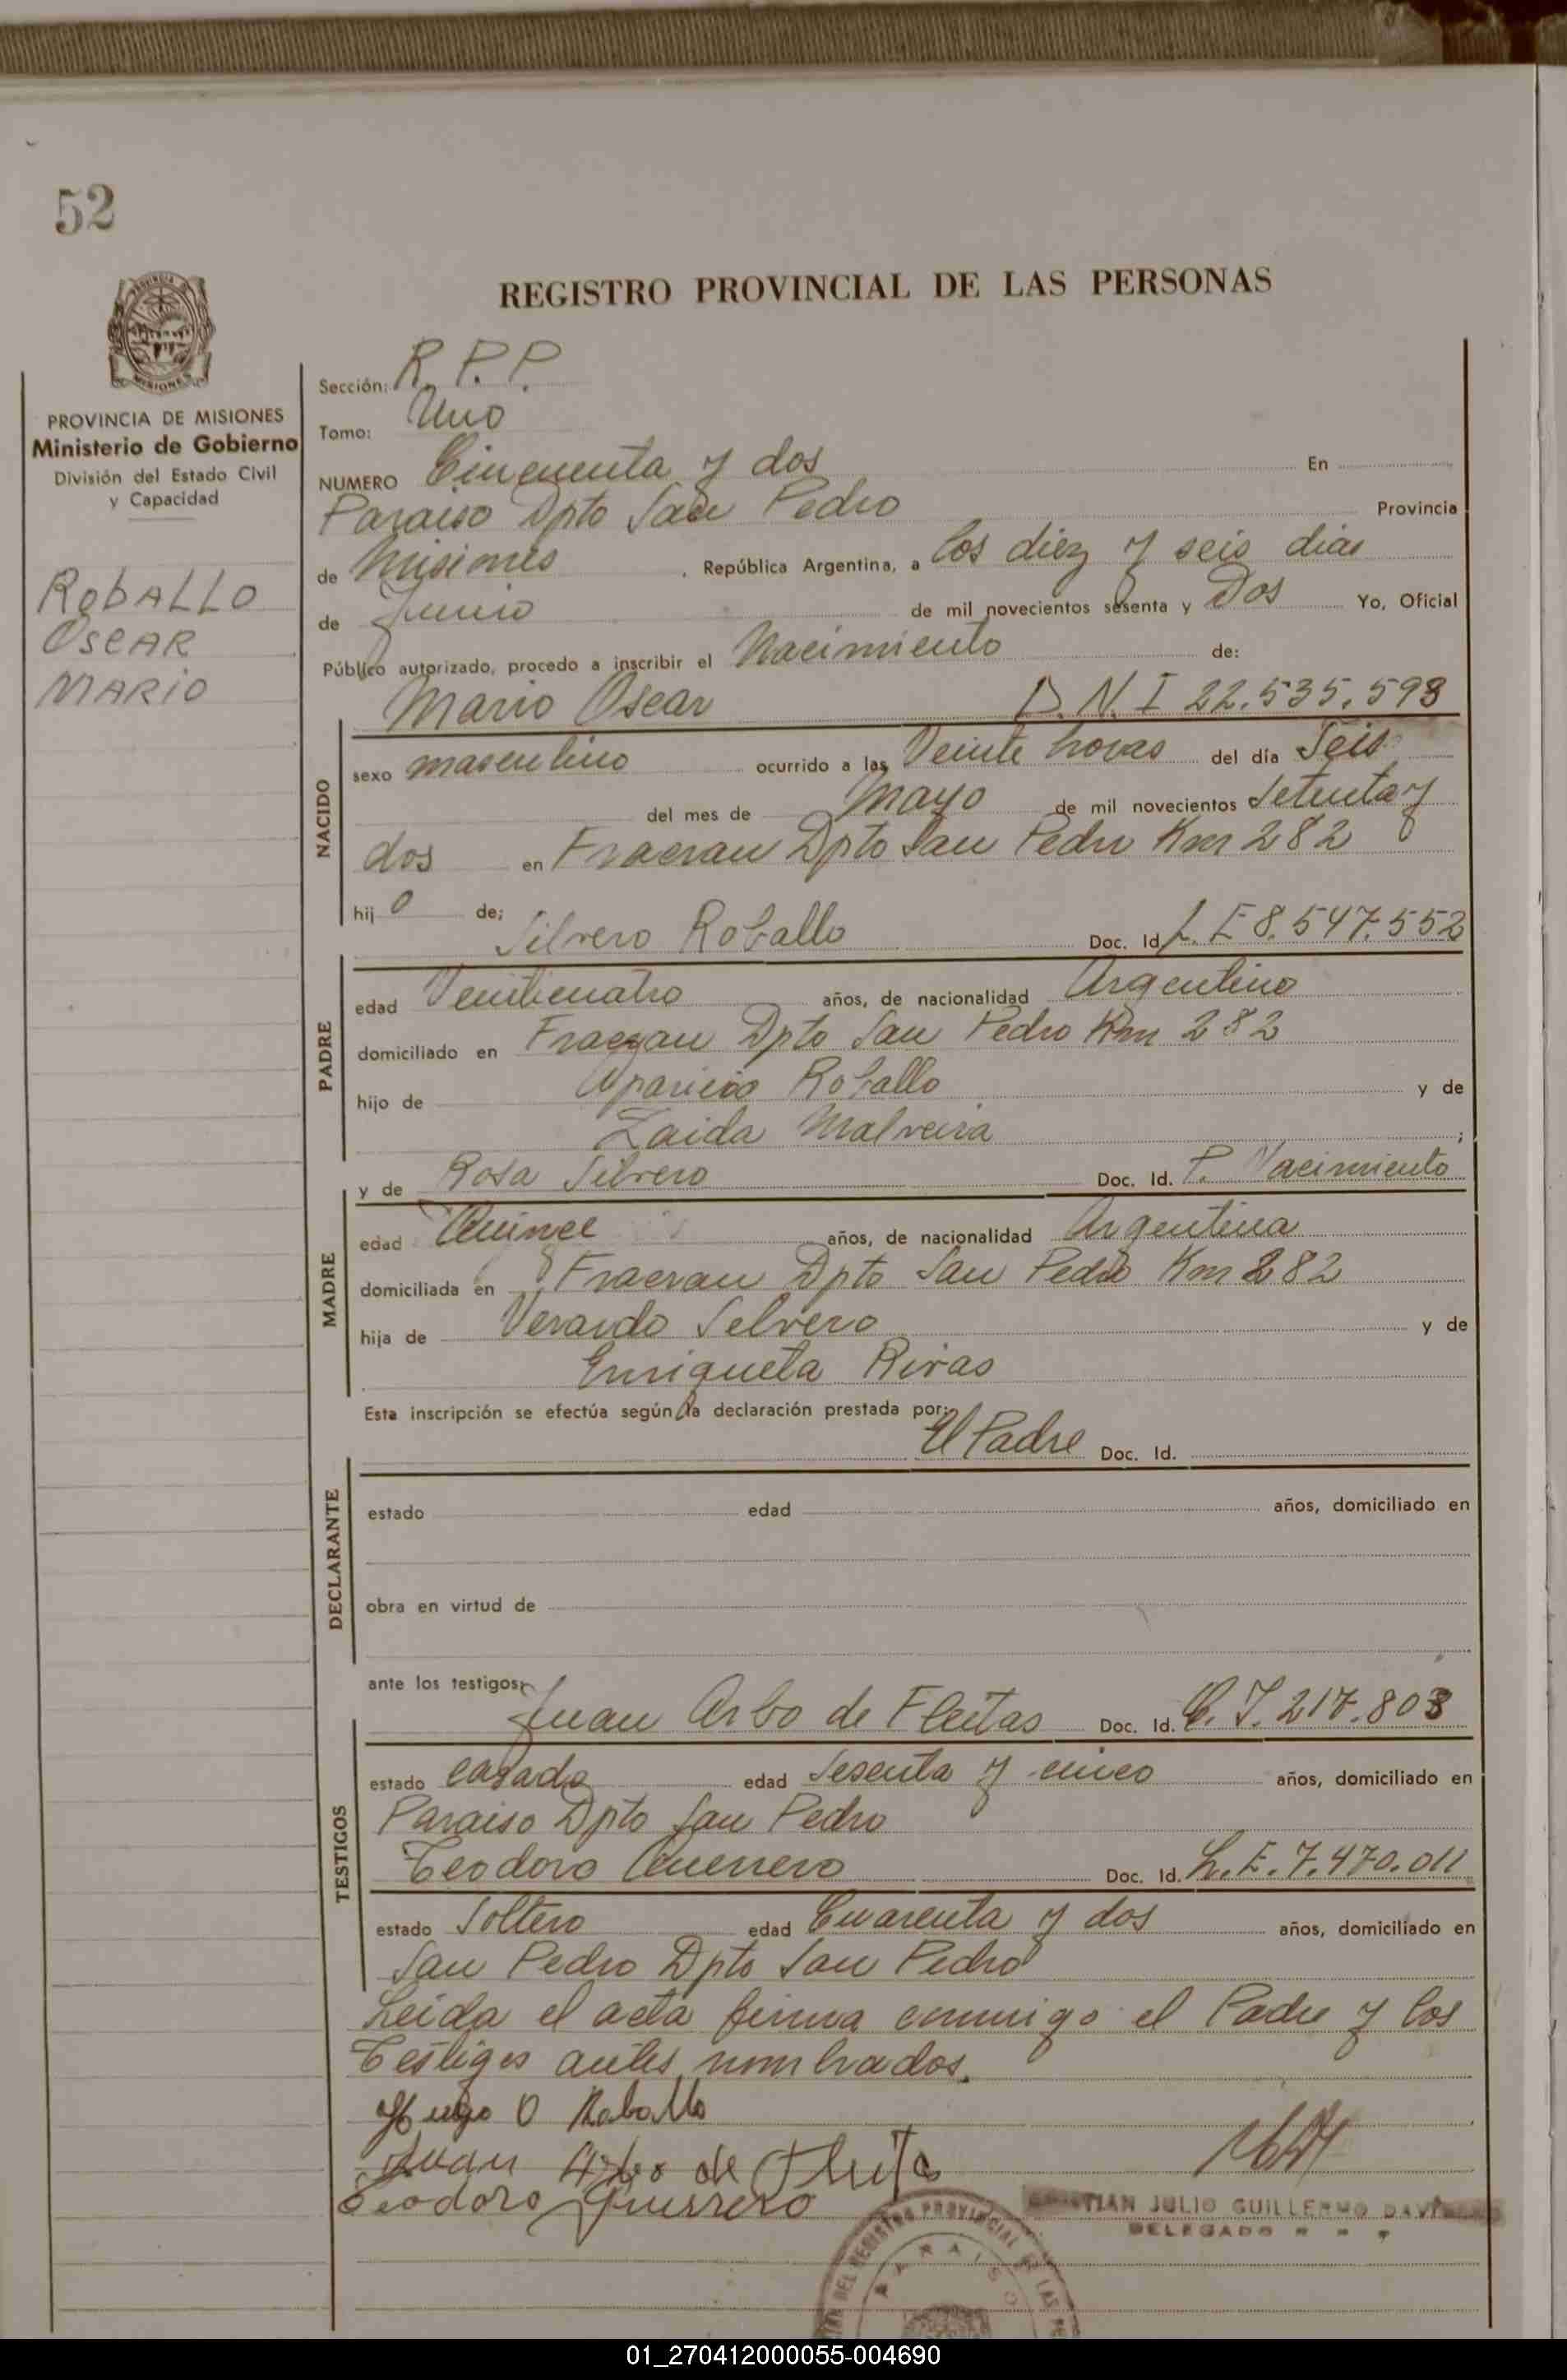 52
REGISTRO PROVINCIAL DE LAS PERSONAS
PROVINCIA DE MISIONES
Ministerio de Gobierno
División del Estado Civil
y Capacidad
RobALLO
OSCAR
MARIO
Sección: R. P. P.
Tomo: Uno
NUMERO Cincuenta y dos En
Paraiso Dpto San Pedro Provincia
de Misiones . República Argentina, a los diez y seis dias
de Junio de mil novecientos sesenta y Dos Yo, Oficial
Público autorizado, procedo a inscribir el Nacimiento de:
Mario Oscar D. N. I 22.535.598
NACIDO
sexo masculino ocurrido a las Veinte horas del día Seis
del mes de Mayo de mil novecientos Setenta y
dos en Fracran Dpto San Pedro Km 282
hij o de; Silvero Roballo Doc. Id L. E 8.547.552
PADRE
edad Veinticuatro años, de nacionalidad Argentino
domiciliado en Fracran Dpto San Pedro Km 282
hijo de Aparicio Roballo y de
Zaida Malveira ;
y de Rosa Silvero Doc. Id. P. Nacimiento
MADRE
edad Quince años, de nacionalidad Argentina
domiciliada en Fracran Dpto San Pedro Km 282
hija de Verardo Selvero y de
Enriqueta Rivas
Esta inscripción se efectúa según la declaración prestada por:
El Padre Doc. Id.
DECLARANTE
estado edad años, domiciliado en
obra en virtud de
ante los testigos:
Juan Arbo de Fleitas Doc. Id. C. I. 217.803
TESTIGOS
estado casado edad Sesenta y cinco años, domiciliado en
Paraiso Dpto San Pedro
Teodoro Guerrero Doc. Id. L. E. 7.470.011
estado Soltero edad Cuarenta y dos años, domiciliado en
San Pedro Dpto San Pedro
Leida el acta firma conmigo el Padre y los
Testigos antes nombrados.
Hugo O Roballo
Juan Arbo de Fleita
Teodoro Guerrero
CRISTIAN JULIO GUILLERMO
DELEGADO
DEL REGISTRO PROVINCIAL DE LAS
PARAISO
01_270412000055-004690